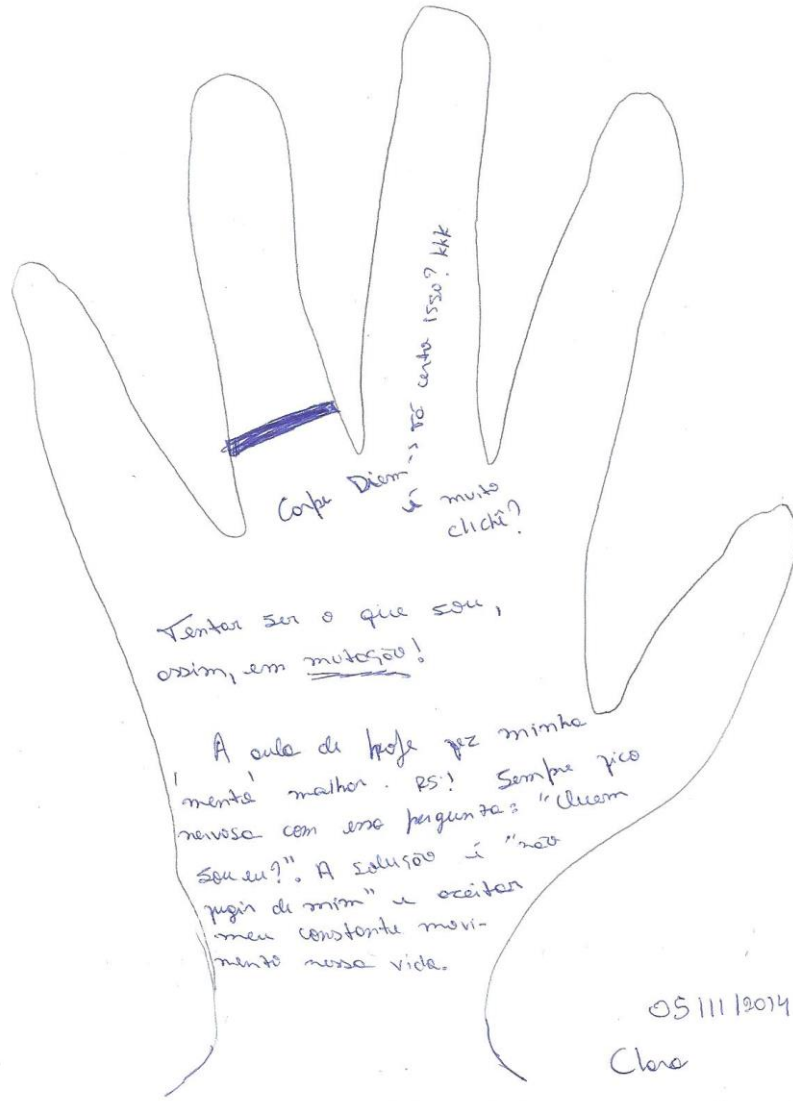 Carpe Diem
tá certo isso? kkk
é muito
clichê?
Tentar ser o que sou,
assim, em mutação!
A aula de hoje fez minha
'mente' malhar. RS! Sempre fico
nervosa com essa pergunta: "Quem
sou eu?". A solução é "não
fugir de mim" e aceitar
meu constante movi-
mento nessa vida.
05/11/2014
Clara